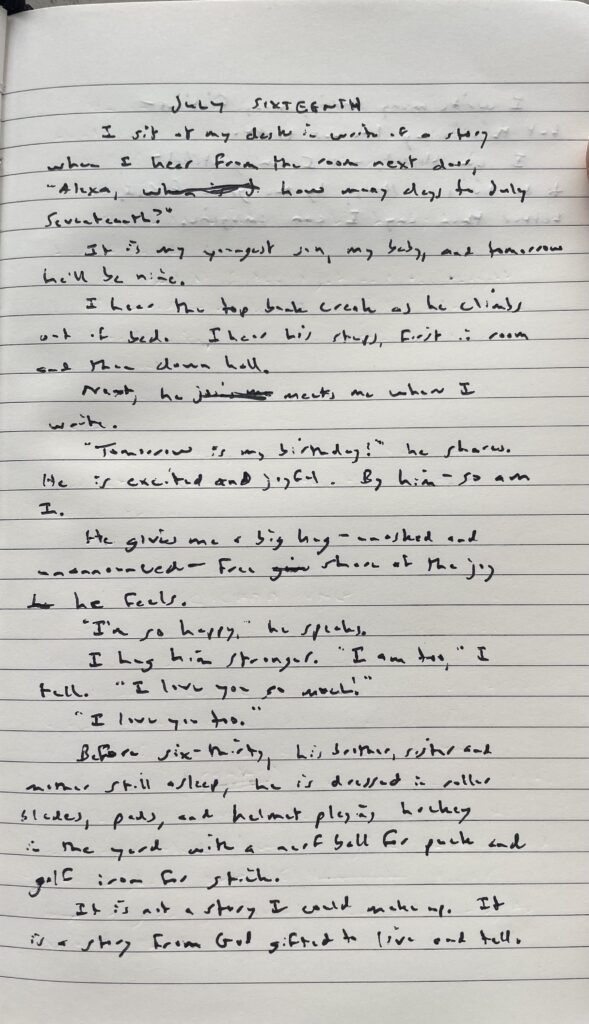 JULY SIXTEENTH
I sit at my desk in write of a story
when I hear from the room next door,
"Alexa, how many days to July
Seventeenth?"
It is my youngest son, my baby, and tomorrow
he'll be nine.
I hear the top bunk creak as he climbs
out of bed. I hear his steps, first in room
and then down hall.
Next, he meets me where I
write.
"Tomorrow is my birthday!" he shares.
He is excited and joyful. By him - so am
I.
He gives me a big hug - unasked and
unannounced - free share of the joy
he feels.
"I'm so happy," he speaks.
I hug him stronger. "I am too," I
tell. "I love you so much!"
"I love you too."
Before six-thirty, his brother, sister and
mother still asleep, he is dressed in roller
blades, pads, and helmet playing hockey
in the yard with a nerf ball for puck and
golf iron for stick.
It is not a story I could make up. It
is a story from God gifted to live and tell.